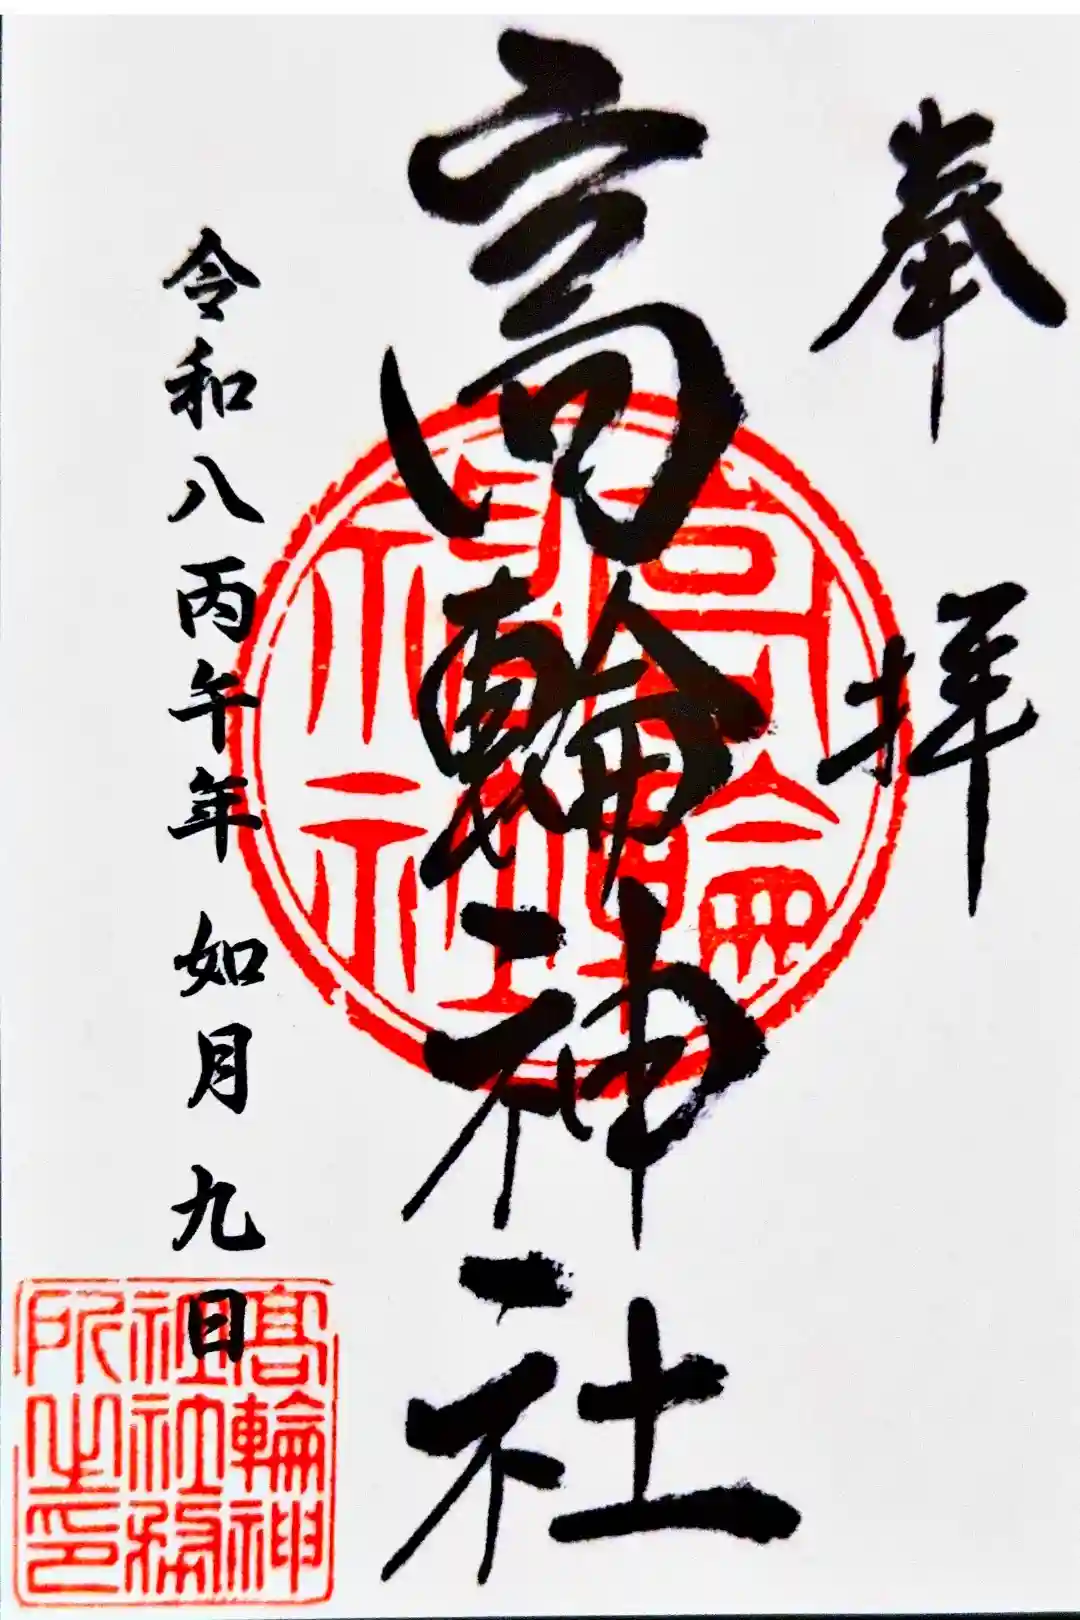 奉拝
高輪神社
令和八丙午年 如月 九日
高輪
神社
高輪神
社社務
所之印